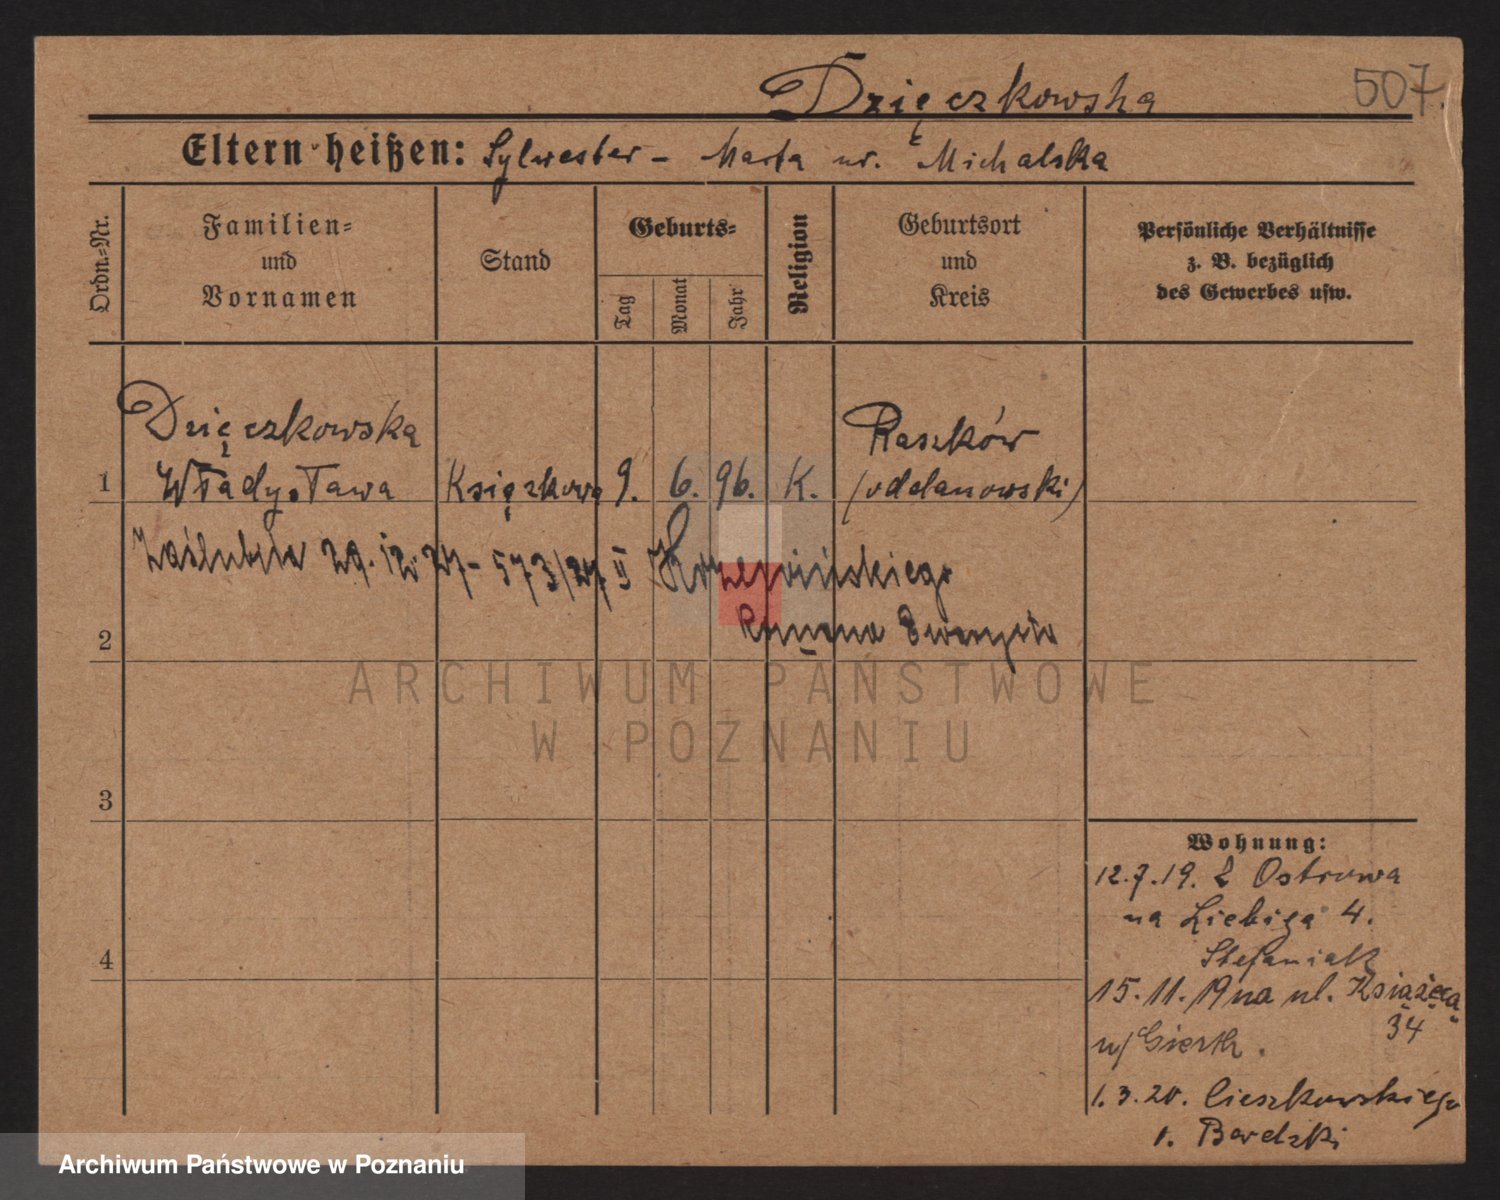 Dzięczkowska 507.
Eltern heißen: Sylwester - Marta ur. Michalska
Ordn.-Nr.
Familien-
und
Vornamen
Stand
Geburts-
Tag
Monat
Jahr
Religion
Geburtsort
und
Kreis
Persönliche Verhältnisse
z. B. bezüglich
des Gewerbes usw.
Dzięczkowska Raszków
1 Władysława Książkowa 9. 6. 96. K. (odolanowski)
Zaślubiła 29. 12. 27 - 573/27 II
Romana
2
ARCHIWUM PAŃSTWOWE
W POZNANIU
3
Wohnung:
12.7.19. Z Ostrowa
na Liebiga 4.
4
Stefaniak
15.11.19 na ul. Książęcą
34
1.3.20. Cieszkowskiego
Archiwum Państwowe w Poznaniu